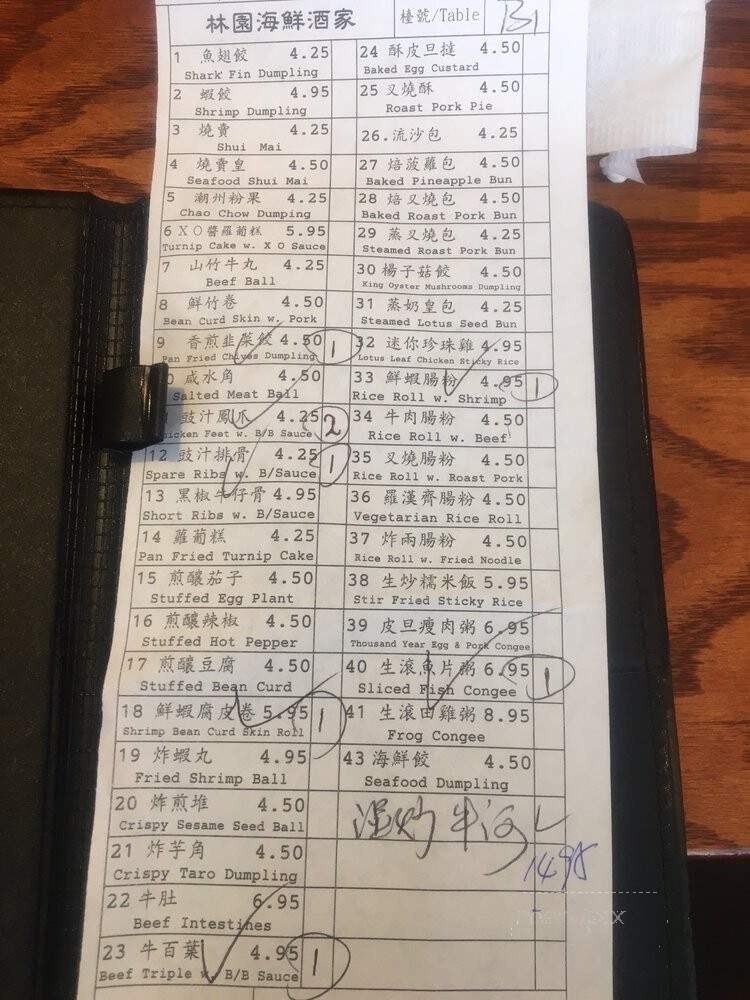 林園海鮮酒家 檯號/Table B1
1 魚翅餃 4.25
Shark Fin Dumpling
2 蝦餃 4.95
Shrimp Dumpling
3 燒賣 4.25
Shui Mai
4 燒賣皇 4.50
Seafood Shui Mai
5 潮州粉果 4.25
Chao Chow Dumping
6 XO醬羅蔔糕 5.95
Turnip Cake w. X O Sauce
7 山竹牛丸 4.25
Beef Ball
8 鮮竹卷 4.50
Bean Curd Skin w. Pork
9 香煎韭菜餃 4.50 1
Pan Fried Chives Dumpling
0 咸水角 4.50
Salted Meat Ball
豉汁鳳爪 4.25 2
Chicken Feet w. B/B Sauce
12 豉汁排骨 4.25 1
Spare Ribs w. B/Sauce
13 黑椒牛仔骨 4.95
Short Ribs w. B/Sauce
14 蘿蔔糕 4.25
Pan Fried Turnip Cake
15 煎釀茄子 4.50
Stuffed Egg Plant
16 煎釀辣椒 4.50
Stuffed Hot Pepper
17 煎釀豆腐 4.50
Stuffed Bean Curd
18 鮮蝦腐皮卷 5.95 1
Shrimp Bean Curd Skin Roll
19 炸蝦丸 4.95
Fried Shrimp Ball
20 炸煎堆 4.50
Crispy Sesame Seed Ball
21 炸芋角 4.50
Crispy Taro Dumpling
22 牛肚 6.95
Beef Intestines
23 牛百葉 4.95 1
Beef Triple w. B/B Sauce
24 酥皮旦撻 4.50
Baked Egg Custard
25 叉燒酥 4.50
Roast Pork Pie
26.流沙包 4.25
27 焙菠蘿包 4.50
Baked Pineapple Bun
28 焙叉燒包 4.50
Baked Roast Pork Bun
29 蒸叉燒包 4.25
Steamed Roast Pork Bun
30 楊子菇餃 4.50
King Oyster Mushrooms Dumpling
31 蒸奶皇包 4.25
Steamed Lotus Seed Bun
32 迷你珍珠雞 4.95
Lotus Leaf Chicken Sticky Rice
33 鮮蝦腸粉 4.95 1
Rice Roll w. Shrimp
34 牛肉腸粉 4.50
Rice Roll w. Beef
35 叉燒腸粉 4.50
Rice Roll w. Roast Pork
36 羅漢齊腸粉 4.50
Vegetarian Rice Roll
37 炸兩腸粉 4.50
Rice Roll w. Fried Noodle
38 生炒糯米飯 5.95
Stir Fried Sticky Rice
39 皮旦瘦肉粥 6.95
Thousand Year Egg & Pork Congee
40 生滾魚片粥 6.95 1
Sliced Fish Congee
41 生滾田雞粥 8.95
Frog Congee
43 海鮮餃 4.50
Seafood Dumpling
湿炒牛河
1495